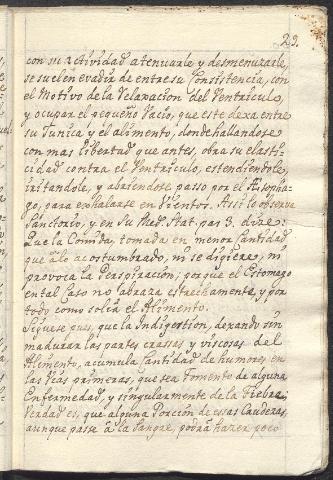 23.
con su actividad atenuarle y desmenuzarle,
se suelen evadir de entre su Consistencia, con
el Motivo de la Relaxacion del Ventriculo,
y ocupar el pequeño Vacio, que este dexa entre
su Tunica y el alimento, donde hallandose
con mas libertad que antes, obra su elasti-
cidad contra el Ventriculo, estendiendole
iritandole, y abriendose passo por el Æsopha-
go, para exhalarse en Vientos. Assi lo observa
Sanctorio, y en su Med. Stat. par 3. dize:
Que la Comida, tomada en menor Cantidad
que a lo acostumbrado, ni se digiere, ni
provoca la Perspiracion; porque el Estomago
en tal Caso no abraza estrechamente, y por
todo como solia el Alimento.
Siguese pues, que la Indigestion, dexando sin
madurar las partes crasses y viscosas del
Alimento, acumula Cantidad de humores en
las vias primeras, que sea Fomento de alguna
Enfermedad, y singularmente de la Fiebre.
Verdad es, que alguna Porcion de essas Cruderas,
aunque passe â la Sangre, podrà hazer poco